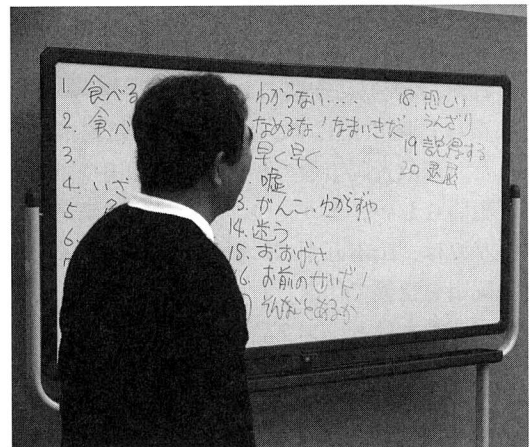 1. 食べる
2. 食べ
3.
4. いざ
5
6.
わからない....
なめるな!なまいきだ
早く早く
嘘
3. がんこ、わからずや
14. 迷う
15. おおげさ
16. お前のせいだ!
そんなことあるか
18. 悲しい
うんざり
19 説得する
20 退屈